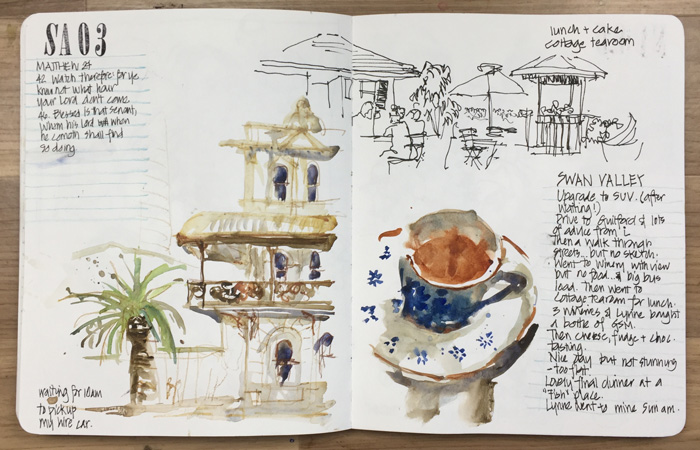 SA03
MATTHEW 24
42 Watch therefore: for ye
know not what hour
your Lord doth come
46 Blessed is that servant,
whom his Lord when
he cometh shall find
so doing.
waiting for 10am
to pick up
my hire car.
lunch + cake
cottage tearoom
SWAN VALLEY
Upgrade to SUV. (after
waiting!)
Drive to Guildford & lots
of advice from i
Then a walk through
streets... but no sketch.
Went to Winery with view
but no food... & big bus
load. Then went to
Cottage tearoom for lunch.
3 wineries & Lynne bought
a bottle of GSM.
Then cheese, fudge + choc.
tasting.
Nice day but not stunning
- too flat!
Lovely final dinner at a
"fish" place.
Lynne went to mine Sun am.